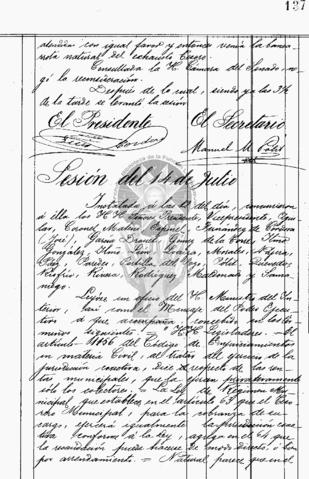 137
atendida con igual favor y entonces venía la banca-
rrota natural del exhausto Tesoro.
Consultada la H. Cámara del Senado, ne-
gó la reconsideración.
Después de lo cual, siendo ya las 3¾
de la tarde se levantó la sesión
El Presidente El Secretario
Manuel M.
Sesión del 14 de Julio
Instalada á las 12 del día, concurrieron
á ella los H.H. Señores Presidente, Vicepresidente, Agui-
lar, Coronel, Mateus, Espinel, Fernández de Córdova
(José), García Drouet, Gómez de la Torre,
González, León, Loyaga, Morales,
Páez, Paredes, Portilla,
Riofrío, Rivera, Rodríguez, Maldonado y Sama-
niego.
Leyóse un oficio del H. Ministro del In-
terior, así como el Mensaje del Poder Ejecu-
tivo á que acompaña, concebido en los tér-
minos siguientes: = H.H. Legisladores = El
artículo 1156 del Código de Enjuiciamientos
en materia Civil, al tratar del ejercicio de la
jurisdicción coactiva, dice al respecto de las ren-
tas municipales, que la ejercen privativamente
sólo los colectores. = La Ley de Régimen Mu-
nicipal, que establece en el artículo 63 que el Teso-
rero Municipal, para la cobranza de su
cargo, ejercerá igualmente la jurisdicción coac-
tiva conforme á la Ley, agrega en el 64 que
la recaudación puede hacerse de modo directo, ó bien
por arrendamiento. = Natural parece que en el